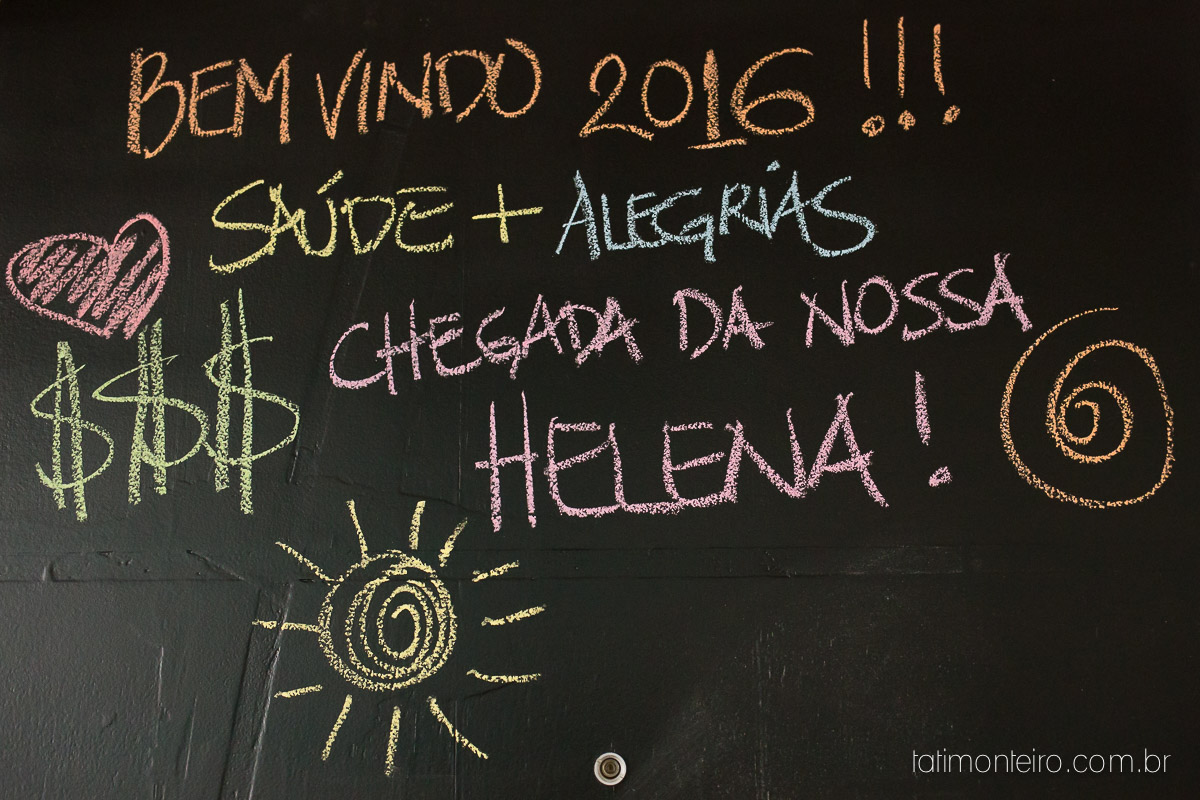 BEM VINDO 2016 !!!
SAÚDE + ALEGRIAS
CHEGADA DA NOSSA
$$$
HELENA!
tatimonteiro.com.br